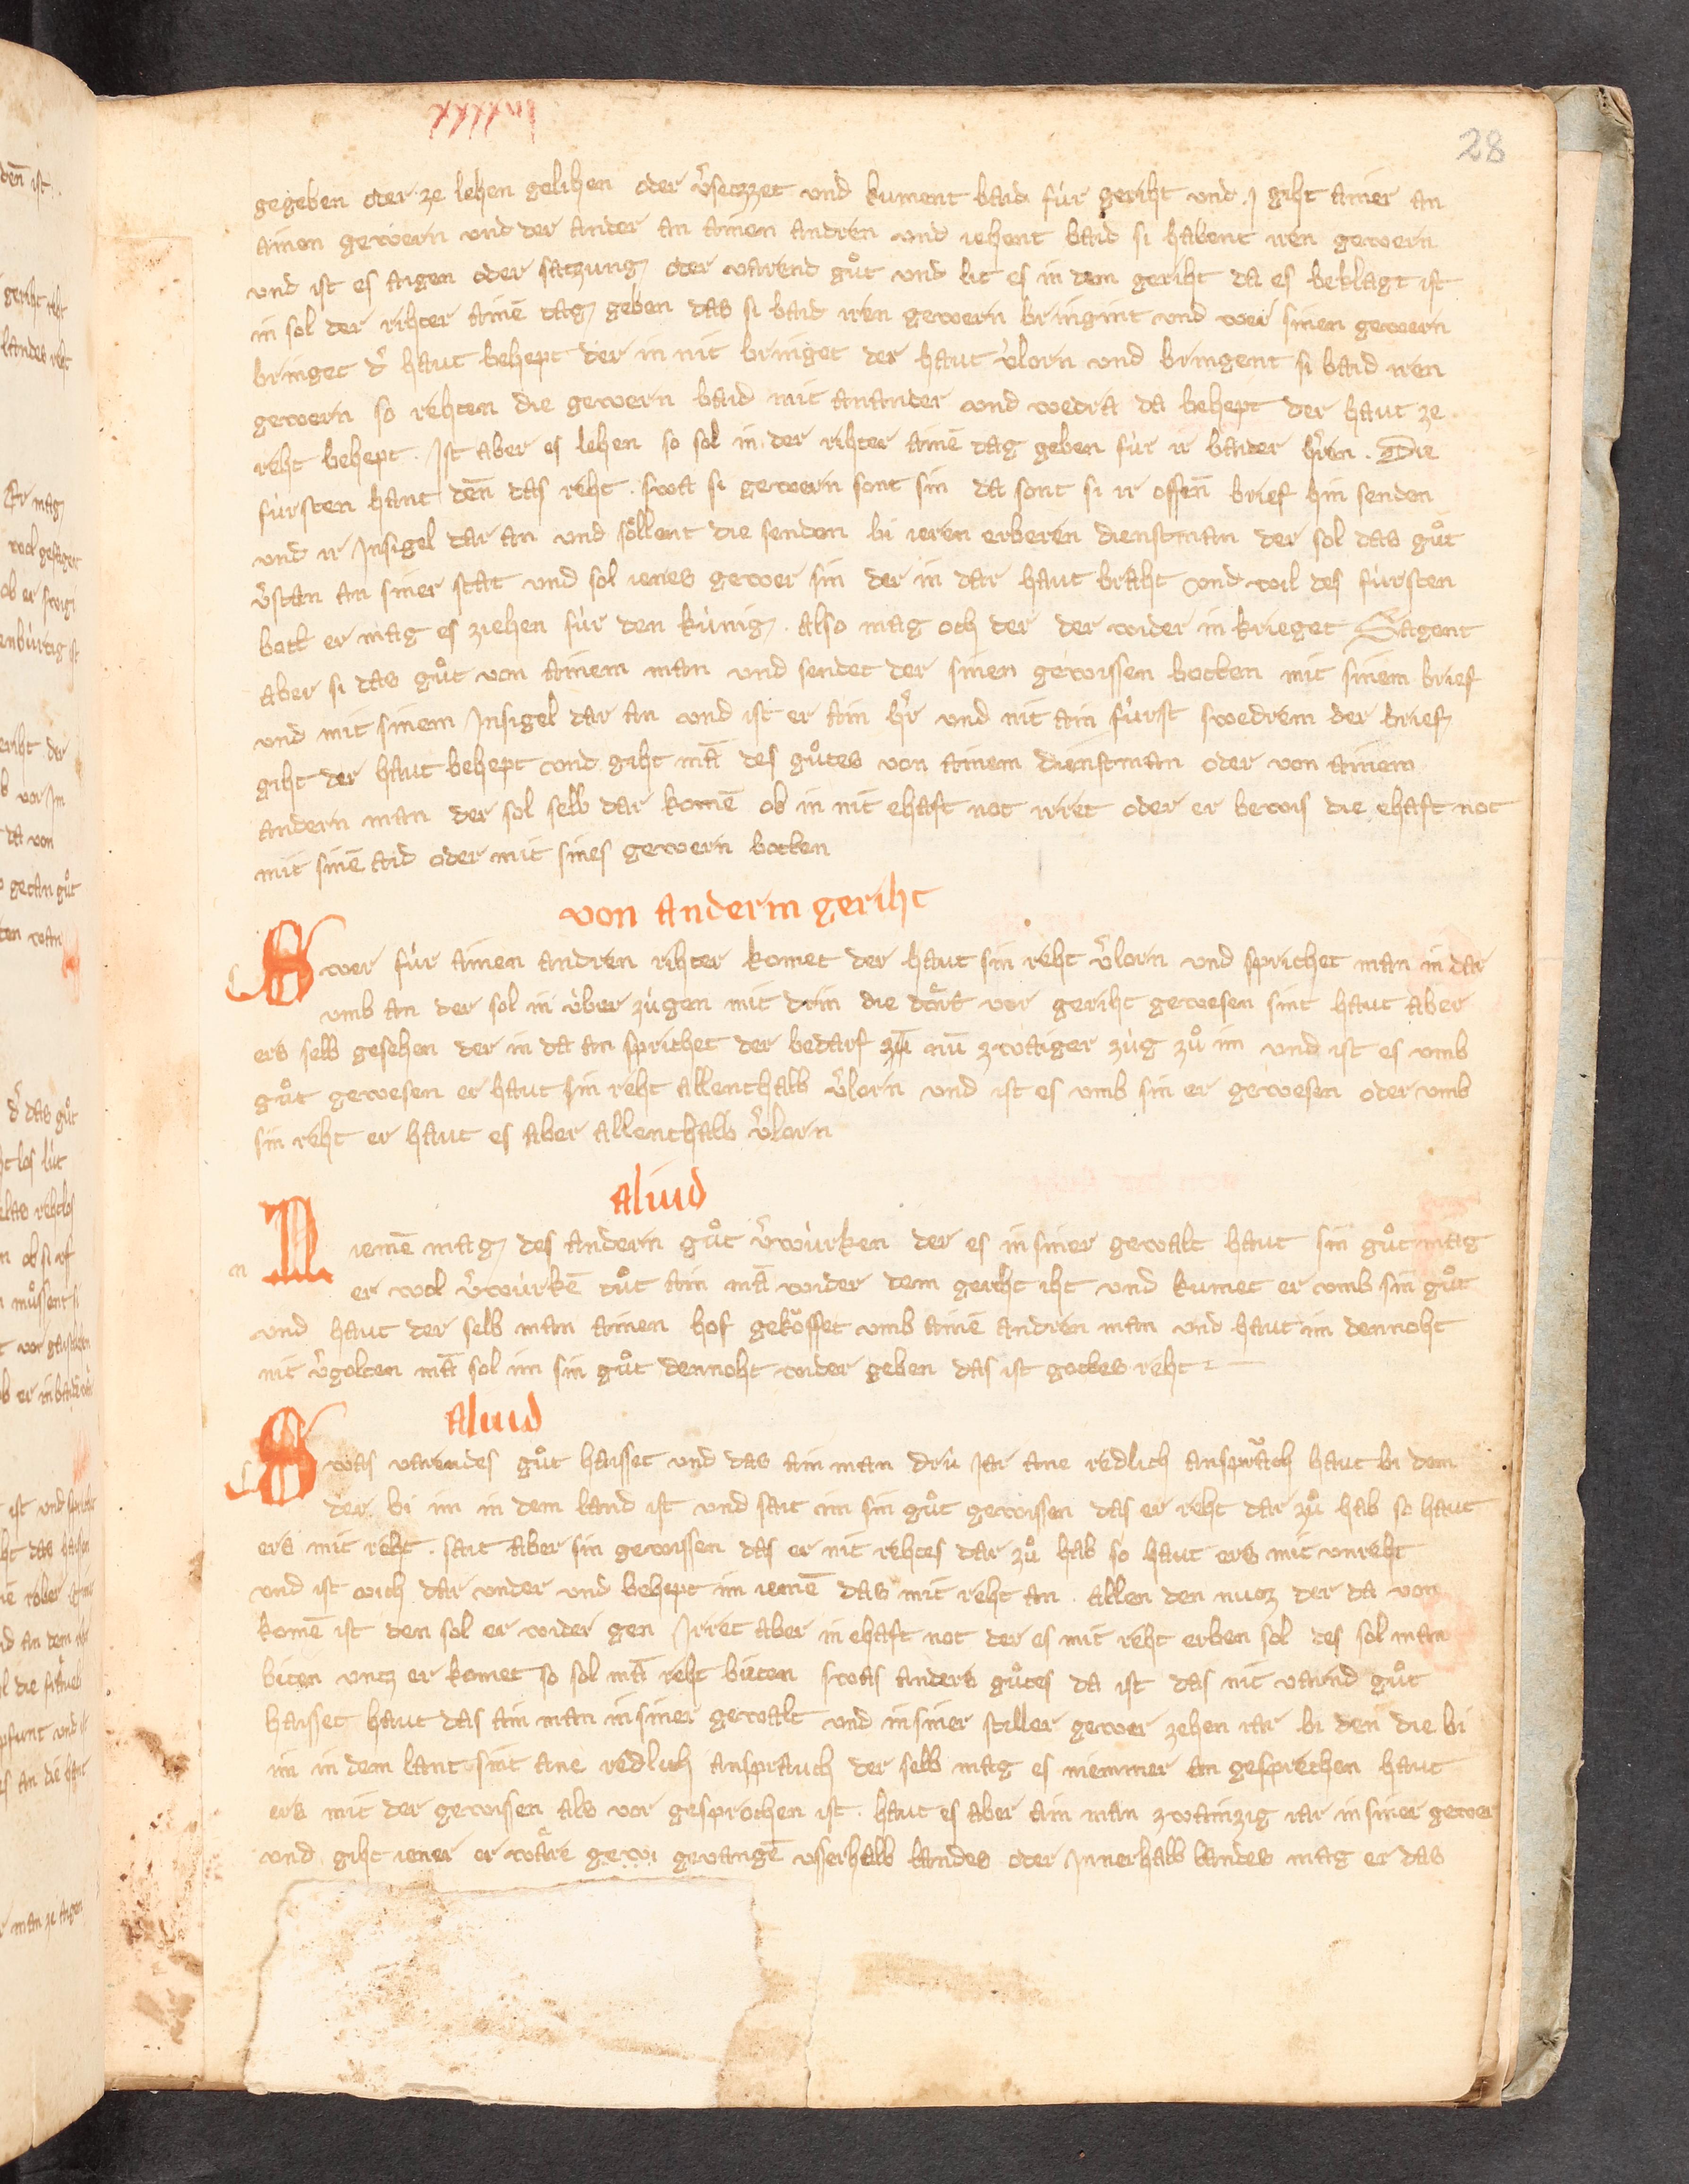 xxxxvij
28
gegeben oder ze lehen gelihen oder v̾seczzet und kument baid für geriht und giht ainer an
ainen gewern und der ander an ainen andren und iehent baid si habent iren gewern
und ist es aigen oder saczung oder varend gůt und lit es in dem geriht da es beklagt ist
in sol der rihter ainē tag geben das si baid iren gewern bringint und wer sinen gewern
bringet d̾ haut behept der in nit bringet der haut v̾lorn und bringent si baid iren
gewern so rehten die gewern baid mit anander und wedra da behept der haut ze
reht behept . Ist aber es lehen so sol in der rihter ainē tag geben für ir baider h̾ren . Die
fürsten hant den̄ das reht . swa si gewern sont sin da sont si ir offen̄ brief hin senden
und ir Insigel dar an und söllent die senden bi ieren erberen dienstman der sol das gůt
v̾stan an siner stat und sol ienes gewer sin der in dar haut braht und wil des fürsten
bott er mag es ziehen für den künig . Also mag och der der wider in krieget Sagent
aber si das gůt von ainem man und sendet der sinen gewissen botten mit sinem brief
und mit sinem Insigel dar an und ist er ain h̾r und nit ain fürst swedrem der brief
giht der haut behept und giht mā des gůtes von ainem dienstman oder von ainem
andern man der sol selb dar komē ob in nit ehaft not irret oder er bewis die ehaft not
mit sinē aid oder mit sines gewern botten
von anderm geriht
Swer für ainen andren rihter komet der haut sin reht v̾lorn und sprichet man in dar
umb an der sol in über zügen mit drin die dört vor geriht gewesen sint haut aber
ers selb gesehen der in da an sprichet der bedarf zů nū zwaiger züg zů im und ist es umb
gůt gewesen er haut sin reht allenthalb v̾lorn und ist es umb sin er gewesen oder umb
sin reht er haut es aber allenthalb v̾lorn
aliud
n
Niemē mag des andern gůt v̾würken der es in siner gewalt haut sin gůt mag
er wol v̾würkē tůt ain mā wider dem geriht iht und kumet er umb sin gůt
und haut der selb man ainen hof geköffet umb ainē andren man und haut im dennoht
nit v̾golten mā sol im sin gůt dennoht wider geben das ist gottes reht
aliud
Swas varendes gůt haisset und das ain man drü Jar ane redlich ansprach haut bi dem
der bi im in dem land ist und sait im sin gůt gewissen das er reht dar zů hab so haut
ers mit reht . sait aber sin gewissen das er nit rehtes dar zů hab so haut ers mit unreht
und ist och dar under und behept im iemē das mit reht an . allen den nucz der da von
komē ist den sol er wider gen Irret aber in ehaft not der es mit reht erben sol des sol man
biten uncz er komet so sol mā reht bieten swas anders gůtes da ist das nit varnd gůt
haisset haut das ain man in siner gewalt und in siner stiller gewer zehen iar bi den die bi
im in dem lant sint ane redlich ansprauch der selb mag es niemmer an gesprechen haut
ers mit der gewissen als vor gesprochen ist . haut es aber ain man zwainzig iar in siner gewer
und giht iener er wäre gevangē usserhalb landes oder Innerhalb landes mag er das